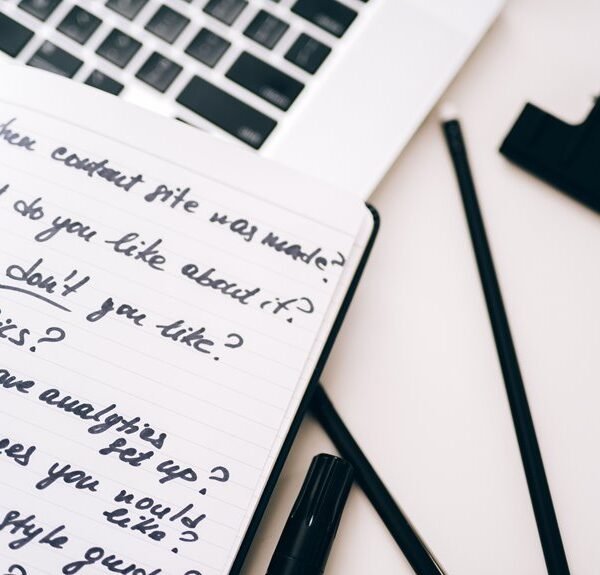 when content site was made?
do you like about it?
don't you like?
ics?
ave analytics
set up?
ees you would
like?
style guide?